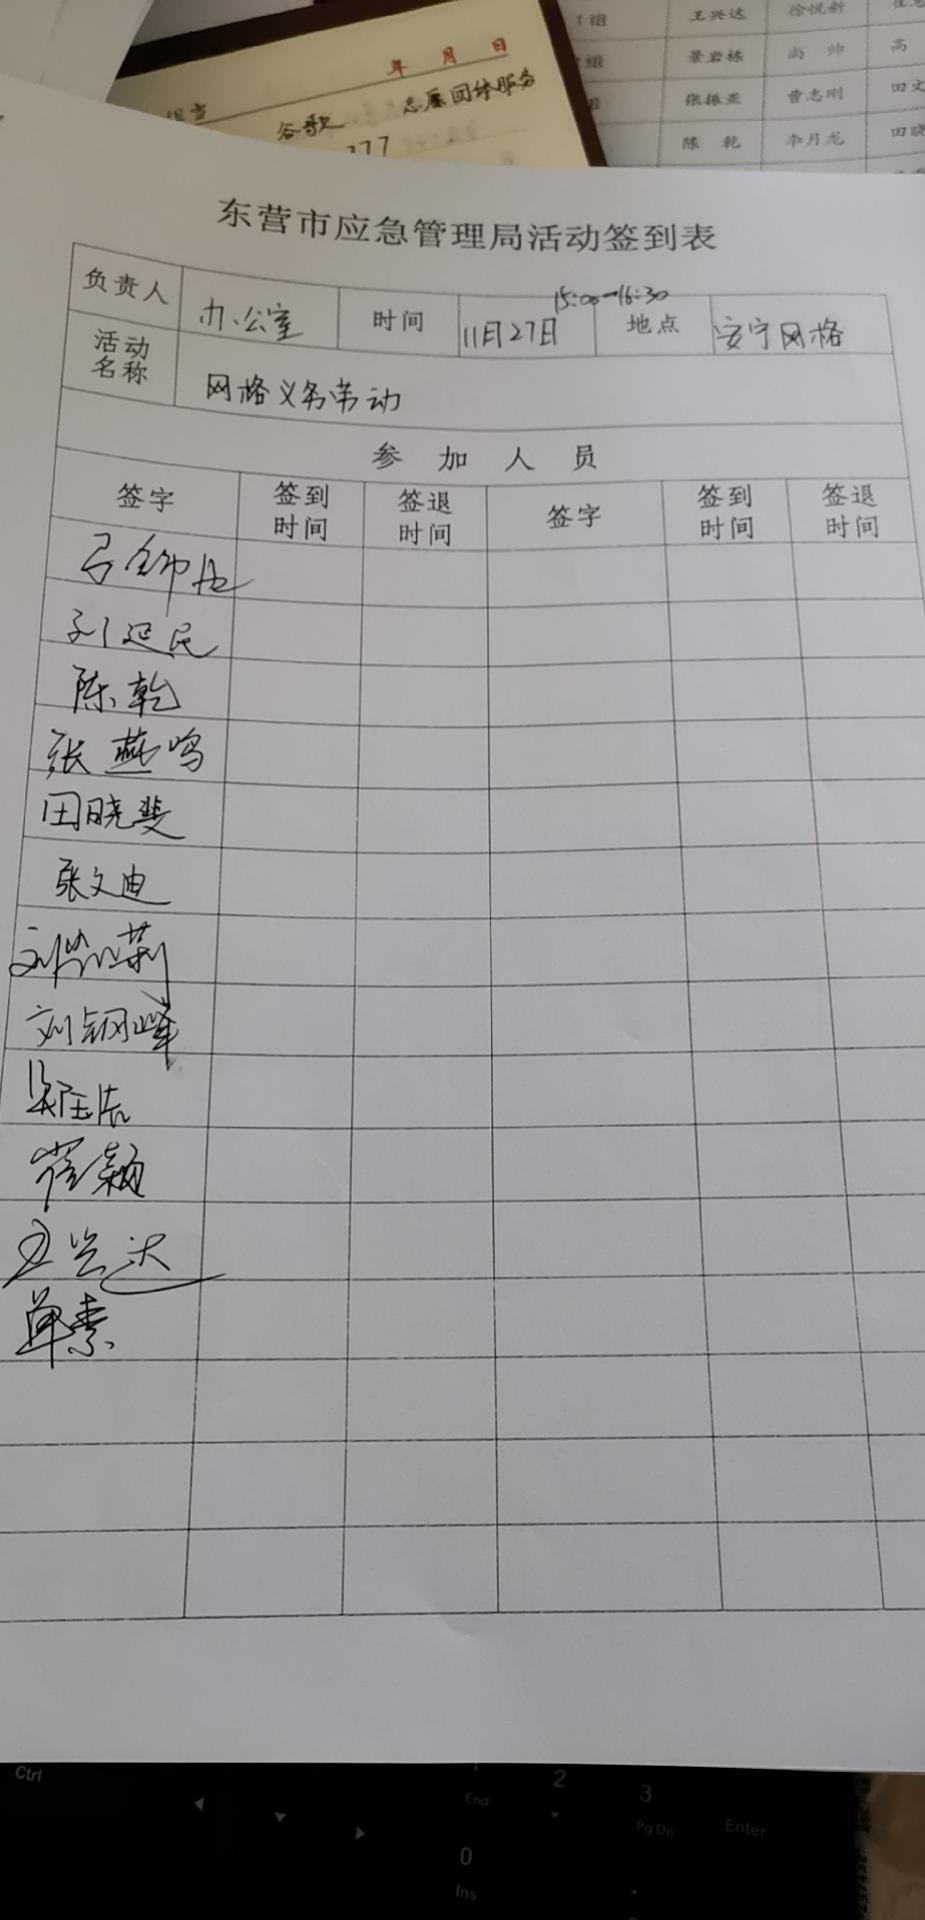 年 月 日
谷歌 志愿团体服务
377
组 王兴达 徐悦新
组 景岩栋 尚 帅 高
张振亚 曹志刚 田文
陈 乾 李月龙 田晓
东营市应急管理局活动签到表
15:00-16:30
负责人 办公室 时间 11月27日 地点 安宁网格
活动名称 网格义务劳动
参 加 人 员
签字 签到时间 签退时间 签字 签到时间 签退时间
刘延民
陈乾
张燕鸣
田晓斐
张文迪
刘钢峰
崔颖
王兴达
单素
Ctrl
End
2
3
Pg Dn
Enter
0
Ins